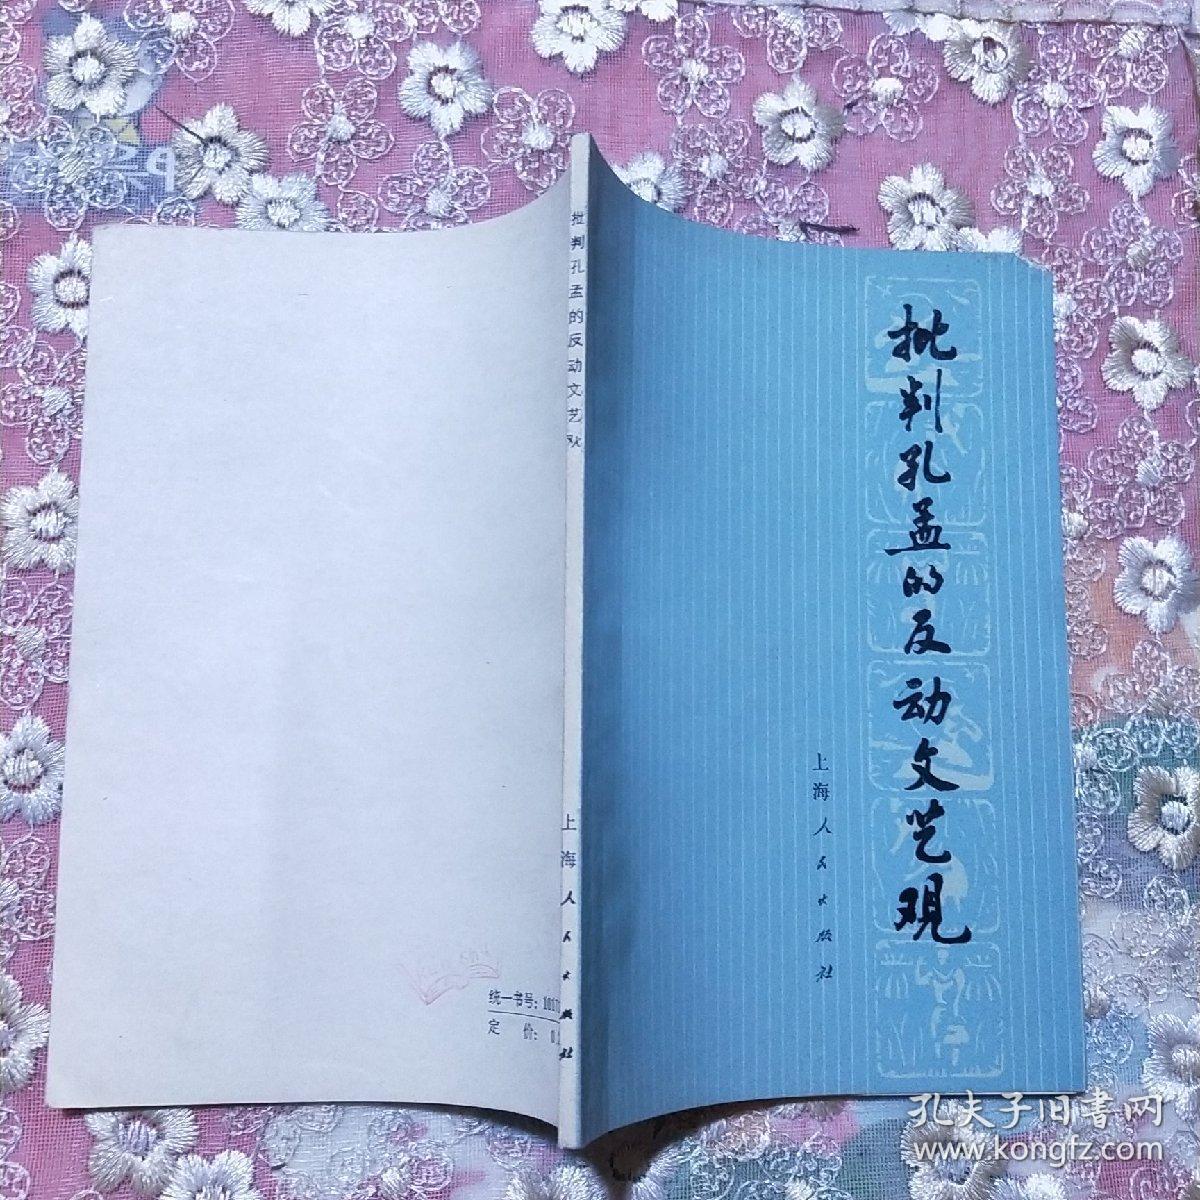 批判孔孟的反动文艺观
上海人民出版社
批判孔孟的反动文艺观
上海人民出版社
统一书号：10171
定 价：0.
孔夫子旧书网
www.kongfz.com